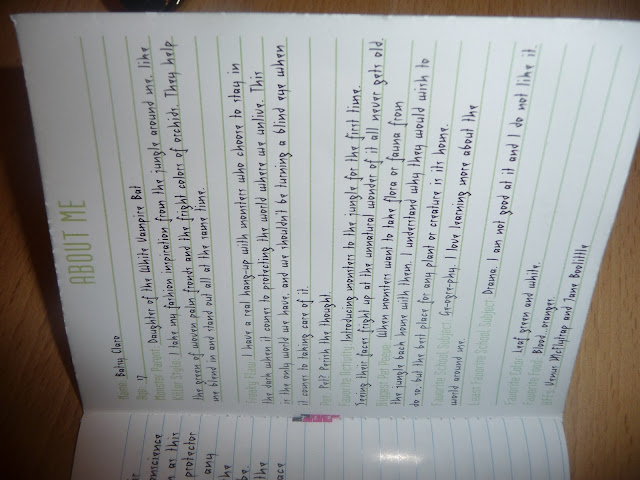 ABOUT ME
Name: Batsy Claro
Age: 17
Monster Parent: Daughter of the White Vampire Bat
Killer Style: I take my fashion inpiration from the jungle around me, like
the green of woven palm fronds and the fright colors of orchids. They help
me blend in and stand out all at the same time.
Freaky Flaw: I have a real hang-up with monsters who choose to stay in
the dark when it comes to protecting the world where we unlive. This
is the only world we have, and we shouldn't be turning a blind eye when
it comes to taking care of it.
Pet: Pet? Perish the thought!
Favorite Activity: Introducing monsters to the jungle for the first time.
Seeing their faces fright up at the unnatural wonder of it all never gets old.
Biggest Pet Peeve: When monsters want to take flora or fauna from
the jungle back home with them. I understand why they would wish to
do so, but the best place for any plant or creature is its home.
Favorite School Subject: Geogre-phy. I love learning more about the
world around me.
Least Favorite School Subject: Drama. I am not good at it and I do not like it.
Favorite Color: Leaf green and white.
Favorite Food: Blood...oranges.
BFFs: Venus McFlytrap and Jane Boolittle
onscience
as this
protector
any
the
be.
the